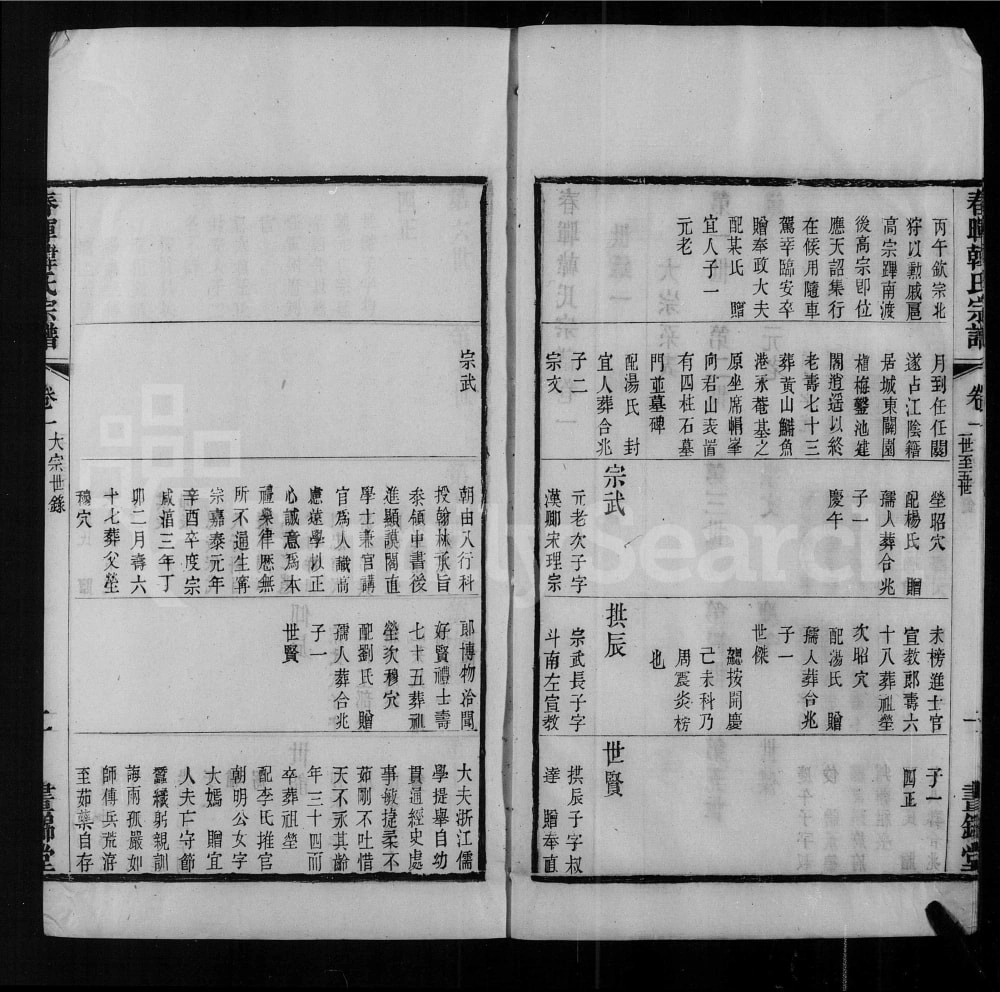 春暉韓氏宗譜
卷一
二世至五世
一
晝錦堂
丙午欽宗北
狩以勳戚扈
高宗蹕南渡
後高宗卽位
應天詔集行
在候用隨車
駕幸臨安卒
贈奉政大夫
配某氏 贈
宜人子一
元老
月到任任闕
遂占江陰籍
居城東關園
植梅鑿池建
閣逍遥以終
老壽七十三
葬黃山鱔魚
港永菴基之
原坐席帽峯
向君山表置
有四柱石墓
門並墓碑
配湯氏 封
宜人葬合兆
子二
宗文
塋昭穴
配楊氏 贈
孺人葬合兆
子一
慶午
宗武
元老次子字
漢卿宋理宗
未榜進士官
宣教郎壽六
十八葬祖塋
次昭穴
配湯氏 贈
孺人葬合兆
子一
世傑
總按開慶
己未科乃
周震炎榜
也
拱辰
宗武長子字
斗南左宣教
子一
四正
世賢
拱辰子字叔
達 贈奉直
宗武
朝由八行科
投翰林承旨
叅領中書後
進顯謨閣直
學士兼官講
官爲人識前
慮遠學以正
心誠意爲本
禮樂律厯無
所不通生甯
宗嘉泰元年
辛酉卒度宗
咸淳三年丁
卯二月壽六
十七葬父塋
穆穴
郎博物洽聞
好賢禮士壽
七十五葬祖
塋次穆穴
配劉氏 贈
孺人葬合兆
子一
世賢
大夫浙江儒
學提舉自幼
貫通經史處
事敏捷柔不
茹剛不吐惜
天不永其齡
年三十四而
卒葬祖塋
配李氏推官
朝明公女字
大嫣 贈宜
人夫亡守節
蠶織躬親訓
誨兩孤嚴如
師傅兵荒洊
至茹蘗自存
春暉韓氏宗譜
卷一
大宗世錄
晝錦堂